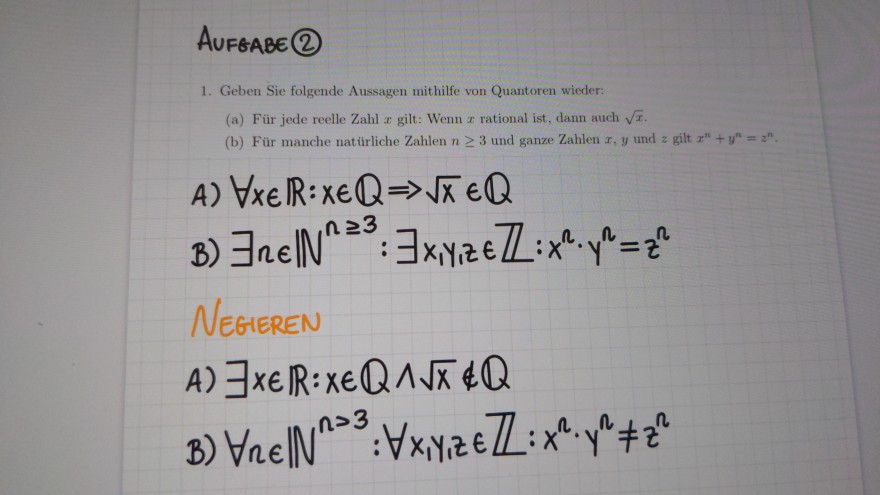 AUFGABE ②
1. Geben Sie folgende Aussagen mithilfe von Quantoren wieder:
(a) Für jede reelle Zahl x gilt: Wenn x rational ist, dann auch √x.
(b) Für manche natürliche Zahlen n ≥ 3 und ganze Zahlen x, y und z gilt xⁿ + yⁿ = zⁿ.
A) ∀x∈ℝ: x∈ℚ ⇒ √x ∈ℚ
B) ∃n∈ℕⁿ≥³ : ∃x,y,z∈ℤ : xⁿ · yⁿ = zⁿ
NEGIEREN
A) ∃x∈ℝ: x∈ℚ ∧ √x ∉ℚ
B) ∀n∈ℕⁿ>³ : ∀x,y,z∈ℤ : xⁿ · yⁿ ≠ zⁿ